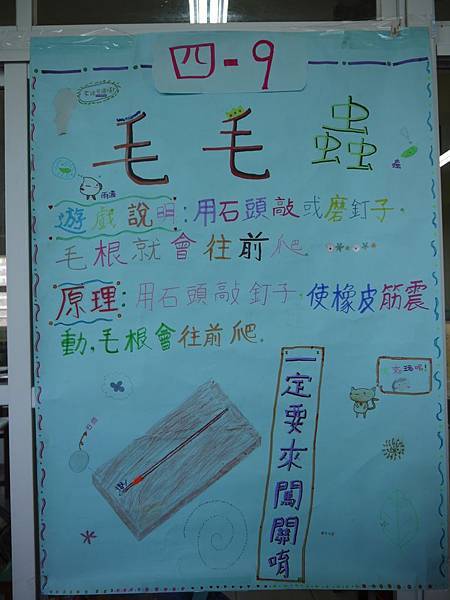 四-9
毛毛蟲
遊戲說明:用石頭敲或磨釘子,
毛根就會往前爬
原理:用石頭敲釘子.使橡皮筋震
動,毛根會往前爬.
一定要來闖關唷